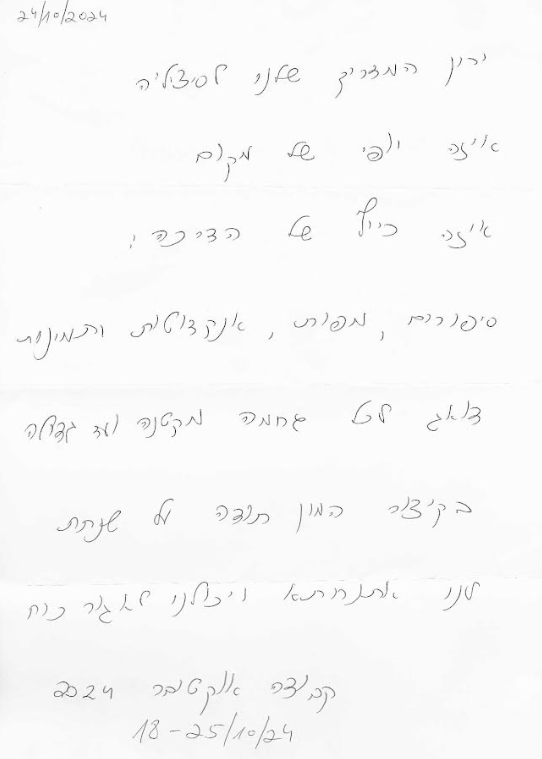 24/10/2024
ירון המדריך שלנו לסיציליה
איזה יופי של מקום
איזה כייף של הדרכה!
סיפורים, מפות, אנקדוטות ותמונות
דואג לכל גחמה מקטנה ועד גדולה
בקיצור המון תודה על שנתת
לנו אתנחתא ויכולנו לאגור כוח
קבוצה אוקטובר 2024
18-25/10/24